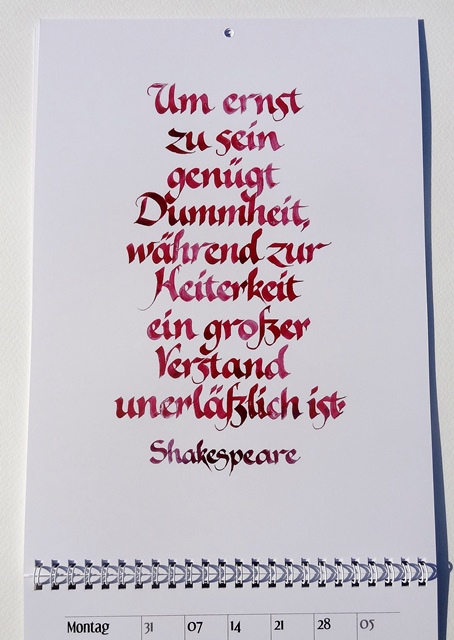 Um ernst
zu sein
genügt
Dummheit,
während zur
Heiterkeit
ein großer
Verstand
unerläßlich ist.
Shakespeare
Montag 31 07 14 21 28 05